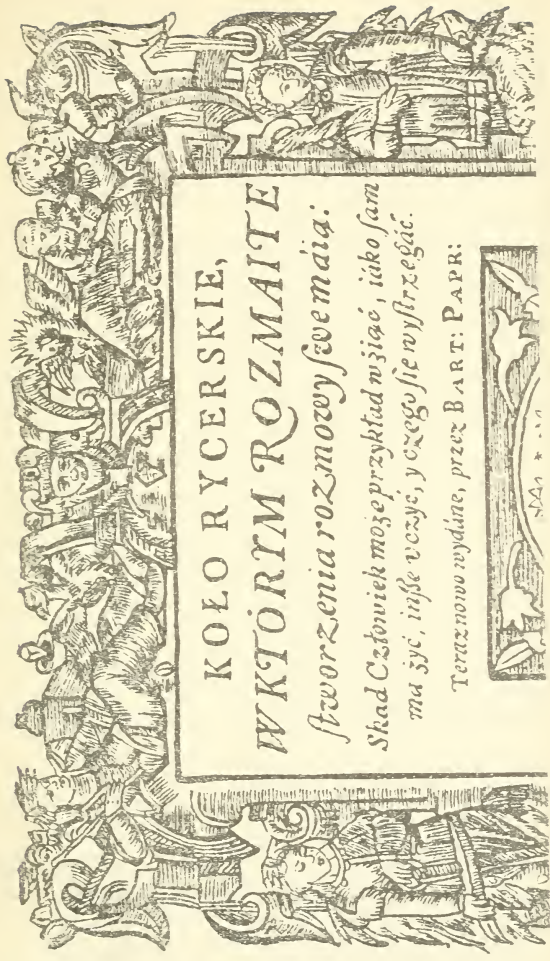 KOŁO RYCERSKIE,
W KTÓRYM ROZMAITE
ſtworzenia rozmowy ſwe máią:
Skad Człowiek może przykład wziąć, iáko ſam
ma żyć, inſze vczyć, y czego ſie wyſtrzegáć.
Teraz nowo wydáne, przez BART: PAPR: